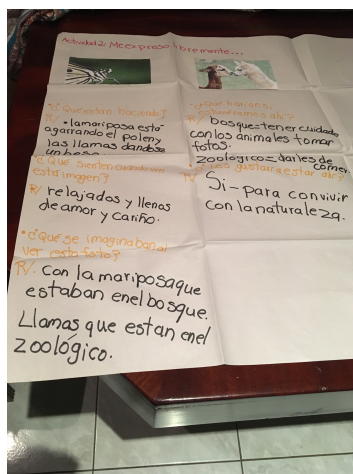 Actividad 2: Me expreso libremente...
¿Qué estan haciendo?
R/ • la mariposa esta
agarrando el polen y
las llamas dandose
un beso
¿Qué sienten cuando ven
esta imagen?
R/ relajados y llenos
de amor y cariño.
• ¿Qué se imaginaban al
ver esta foto?
R/. Con la mariposa que
estaban en el bosque.
Llamas que estan en el
zoológico.
¿Qué harían si
estuvieramos ahí?
R/ bosque = tener cuidado
con los animales tomar
fotos.
zoologico = darles de
comer.
¿Les gustaría estar ahí?
Si - para convivir
con la naturaleza.